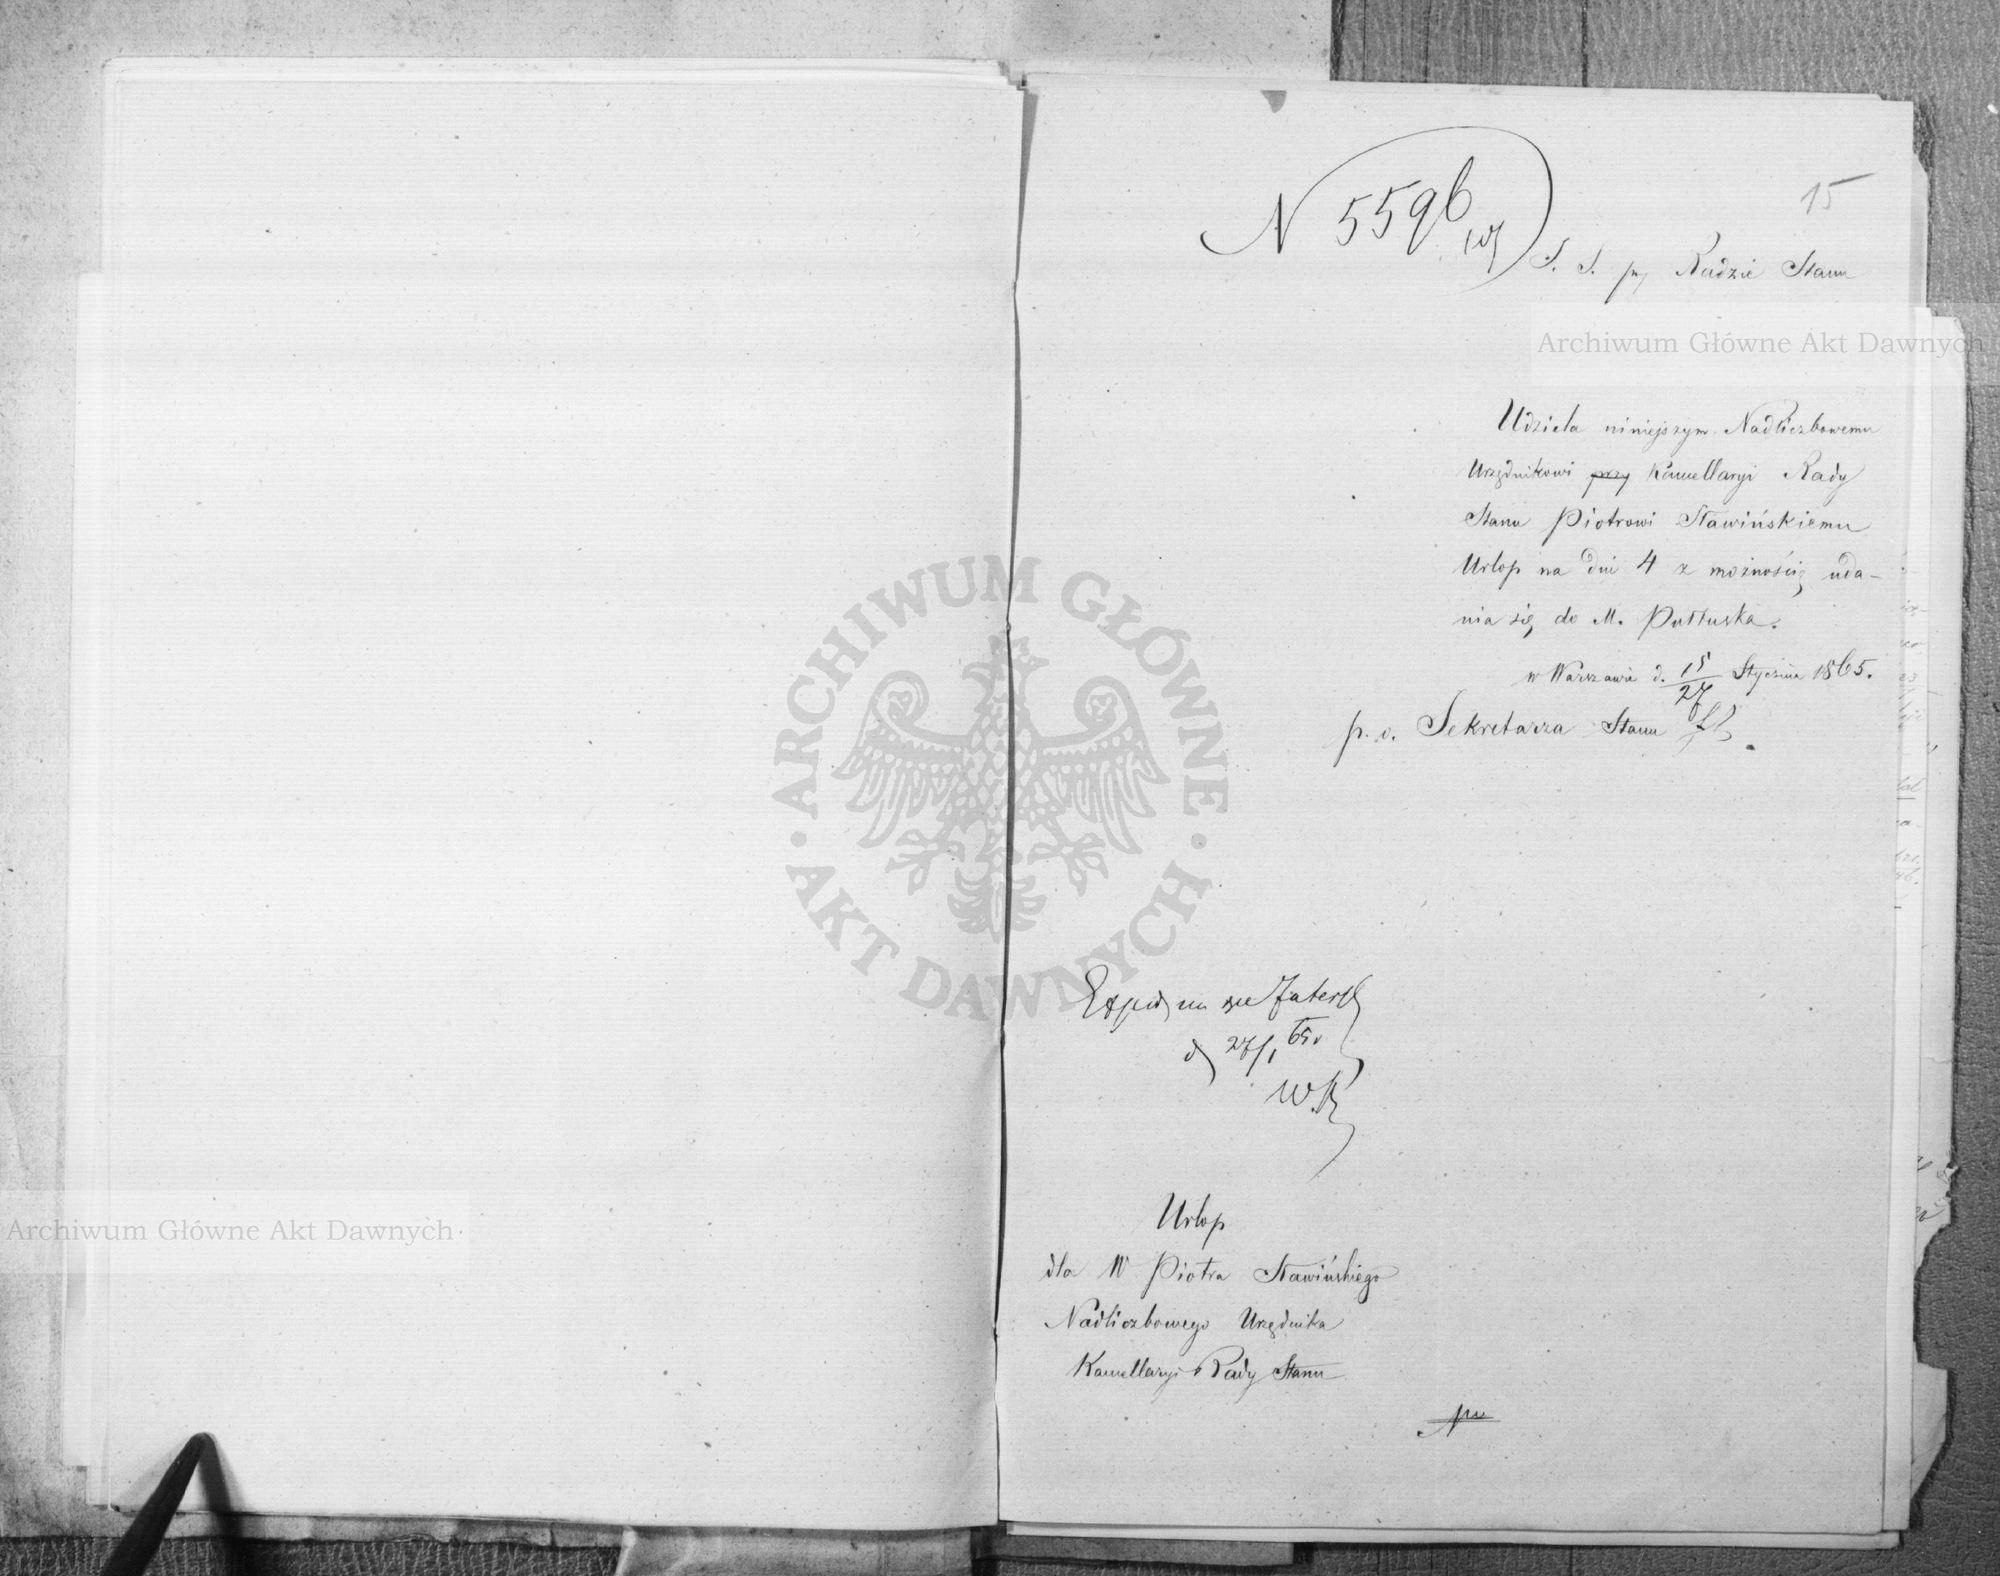 15
N 5596
S. S. pry Radzie Stanu
Udziela niniejszym Nadliczbowemu
Urzędnikowi przy Kancellaryi Rady
Stanu Piotrowi Sławińskiemu
Urlop na dni 4 z możnością uda-
nia się do M. Pułtuska.
w Warszawie d. 15/27 Stycznia 1865.
p. o. Sekretarza Stanu
d 27/1 65
Urlop
dla W Piotra Sławińskiego
Nadliczbowego Urzędnika
Kancellaryi Rady Stanu
Archiwum Główne Akt Dawnych
Archiwum Główne Akt Dawnych
ARCHIWUM GŁÓWNE · AKT DAWNYCH ·